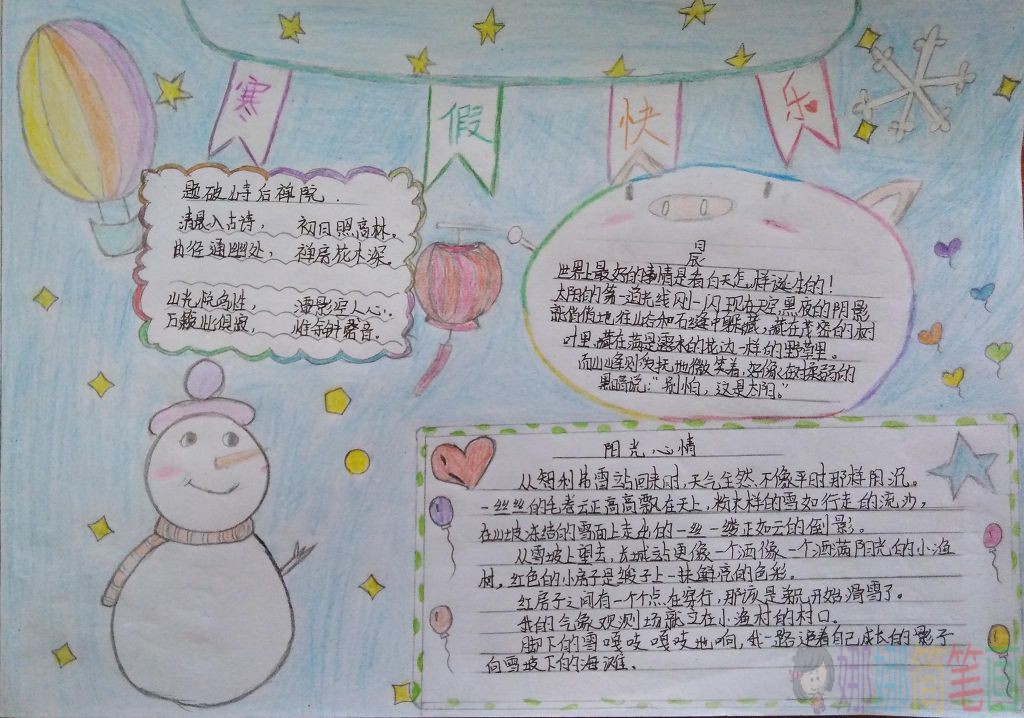 寒假快乐
题破山寺后禅院.
清晨入古诗， 初日照高林。
曲径通幽处， 禅房花木深。
山光悦鸟性， 潭影空人心.
万籁此俱寂， 惟余钟磬音.
晨
世界上最好的事情是看白天怎样诞生的!
太阳的第一道光线闪一闪现天空,黑夜的阴影
就悄悄地往山谷和石缝中躲藏,藏在茂密的树
叶里,藏在满是露水的花边一样的野草里。
而山峰则安抚地微笑着,好像在对柔弱的
黑暗说:“别怕，这是太阳。”
阳光心情
从智利弗雪站回来时,天气全然不像平时那样阴沉。
一丝丝的毛卷云正高高飘在天上,粉末样的雪如行走的流沙，
在山坡冻结的雪面上走出的一丝一缕正如云的倒影。
从雪坡上望去,长城站更像一个洒像一个洒满阳光的小渔
村。红色的小房子是缎子上一抹鲜亮的色彩。
红房子之间有一个个点在穿行,那该是队开始滑雪了。
我的气象观测场就立在小渔村的村口。
脚下的雪嘎吱嘎吱地响,我一路追着自己成长的影子
向雪坡下的海滩。
娜娜简笔画